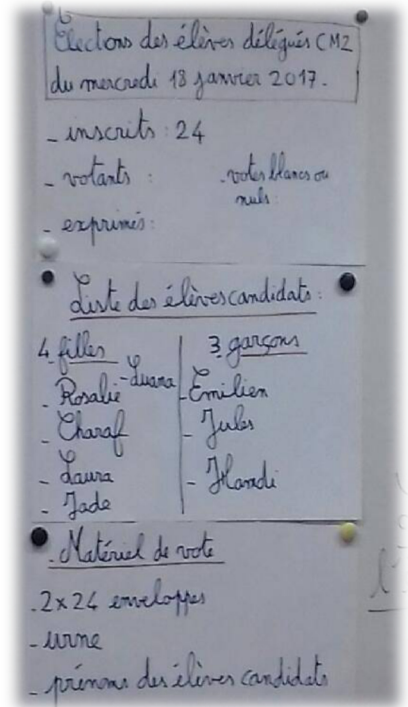 Elections des élèves délégués CM2
du mercredi 18 janvier 2017.
- inscrits : 24
- votants :
- votes blancs ou
nuls :
- exprimés :
Liste des élèves candidats :
4 filles
- Rosalie
- Luana
- Charaf
- Laura
- Jade
3 garçons
- Emilien
- Jules
- Hamdi
- Matériel de vote
- 2x24 enveloppes
- urne
- prénoms des élèves candidats